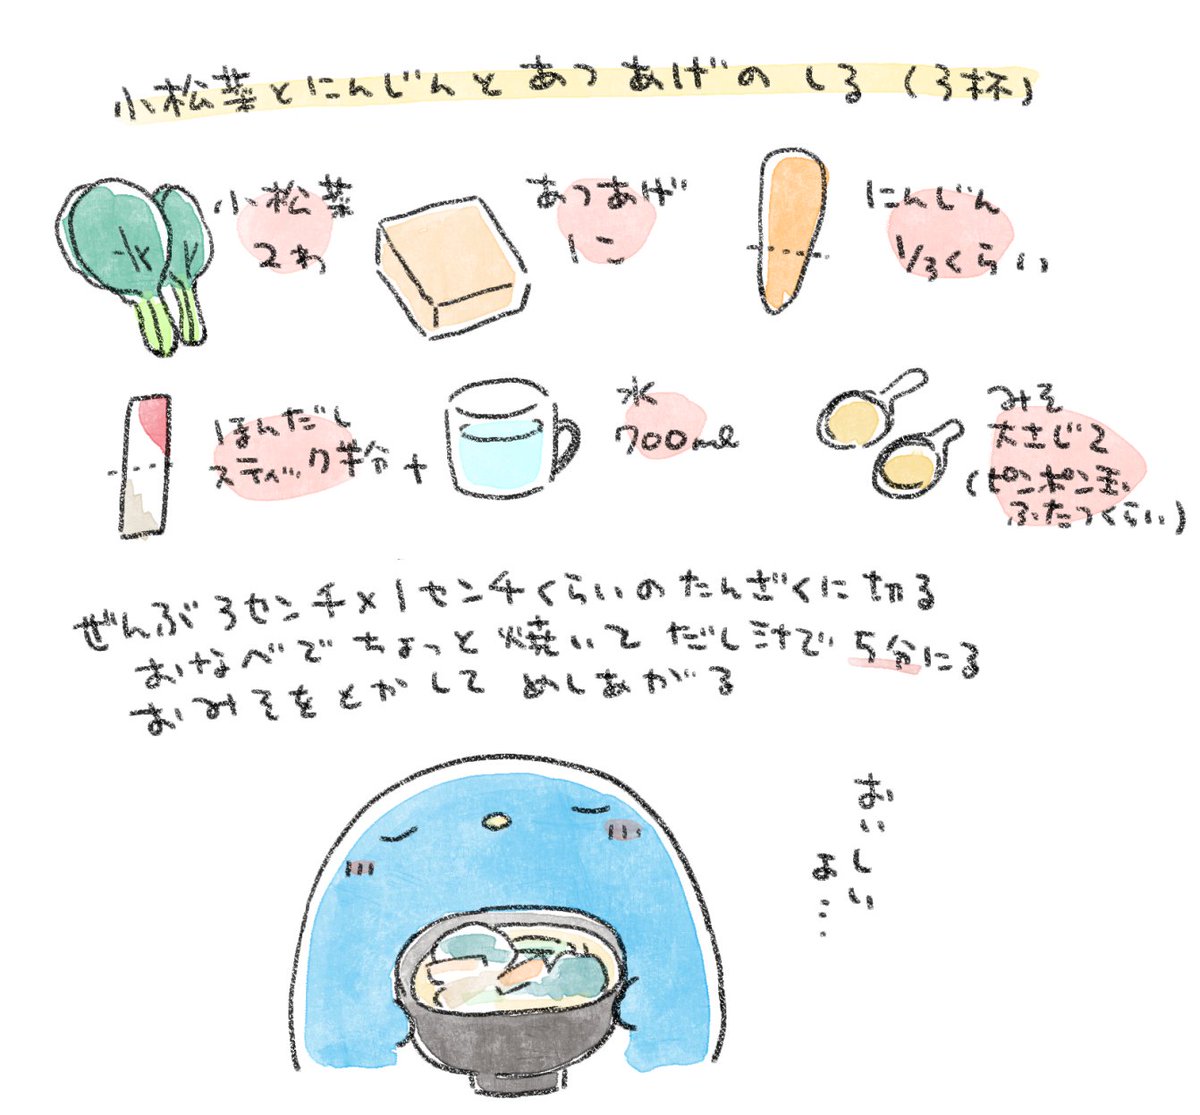 小松菜とにんじんとあつあげのしる(3杯)
小松菜
2わ
あつあげ
1こ
にんじん
1/3くらい
ほんだし
スティック半分
+
水
700ml
みそ
大さじ2
(ピンポン玉
ふたつくらい)
ぜんぶ3センチ×1センチくらいのたんざくに切る
おなべでちょっと焼いてだし汁で5分にる
おみそをとかしてめしあがる
おいしい
よ…